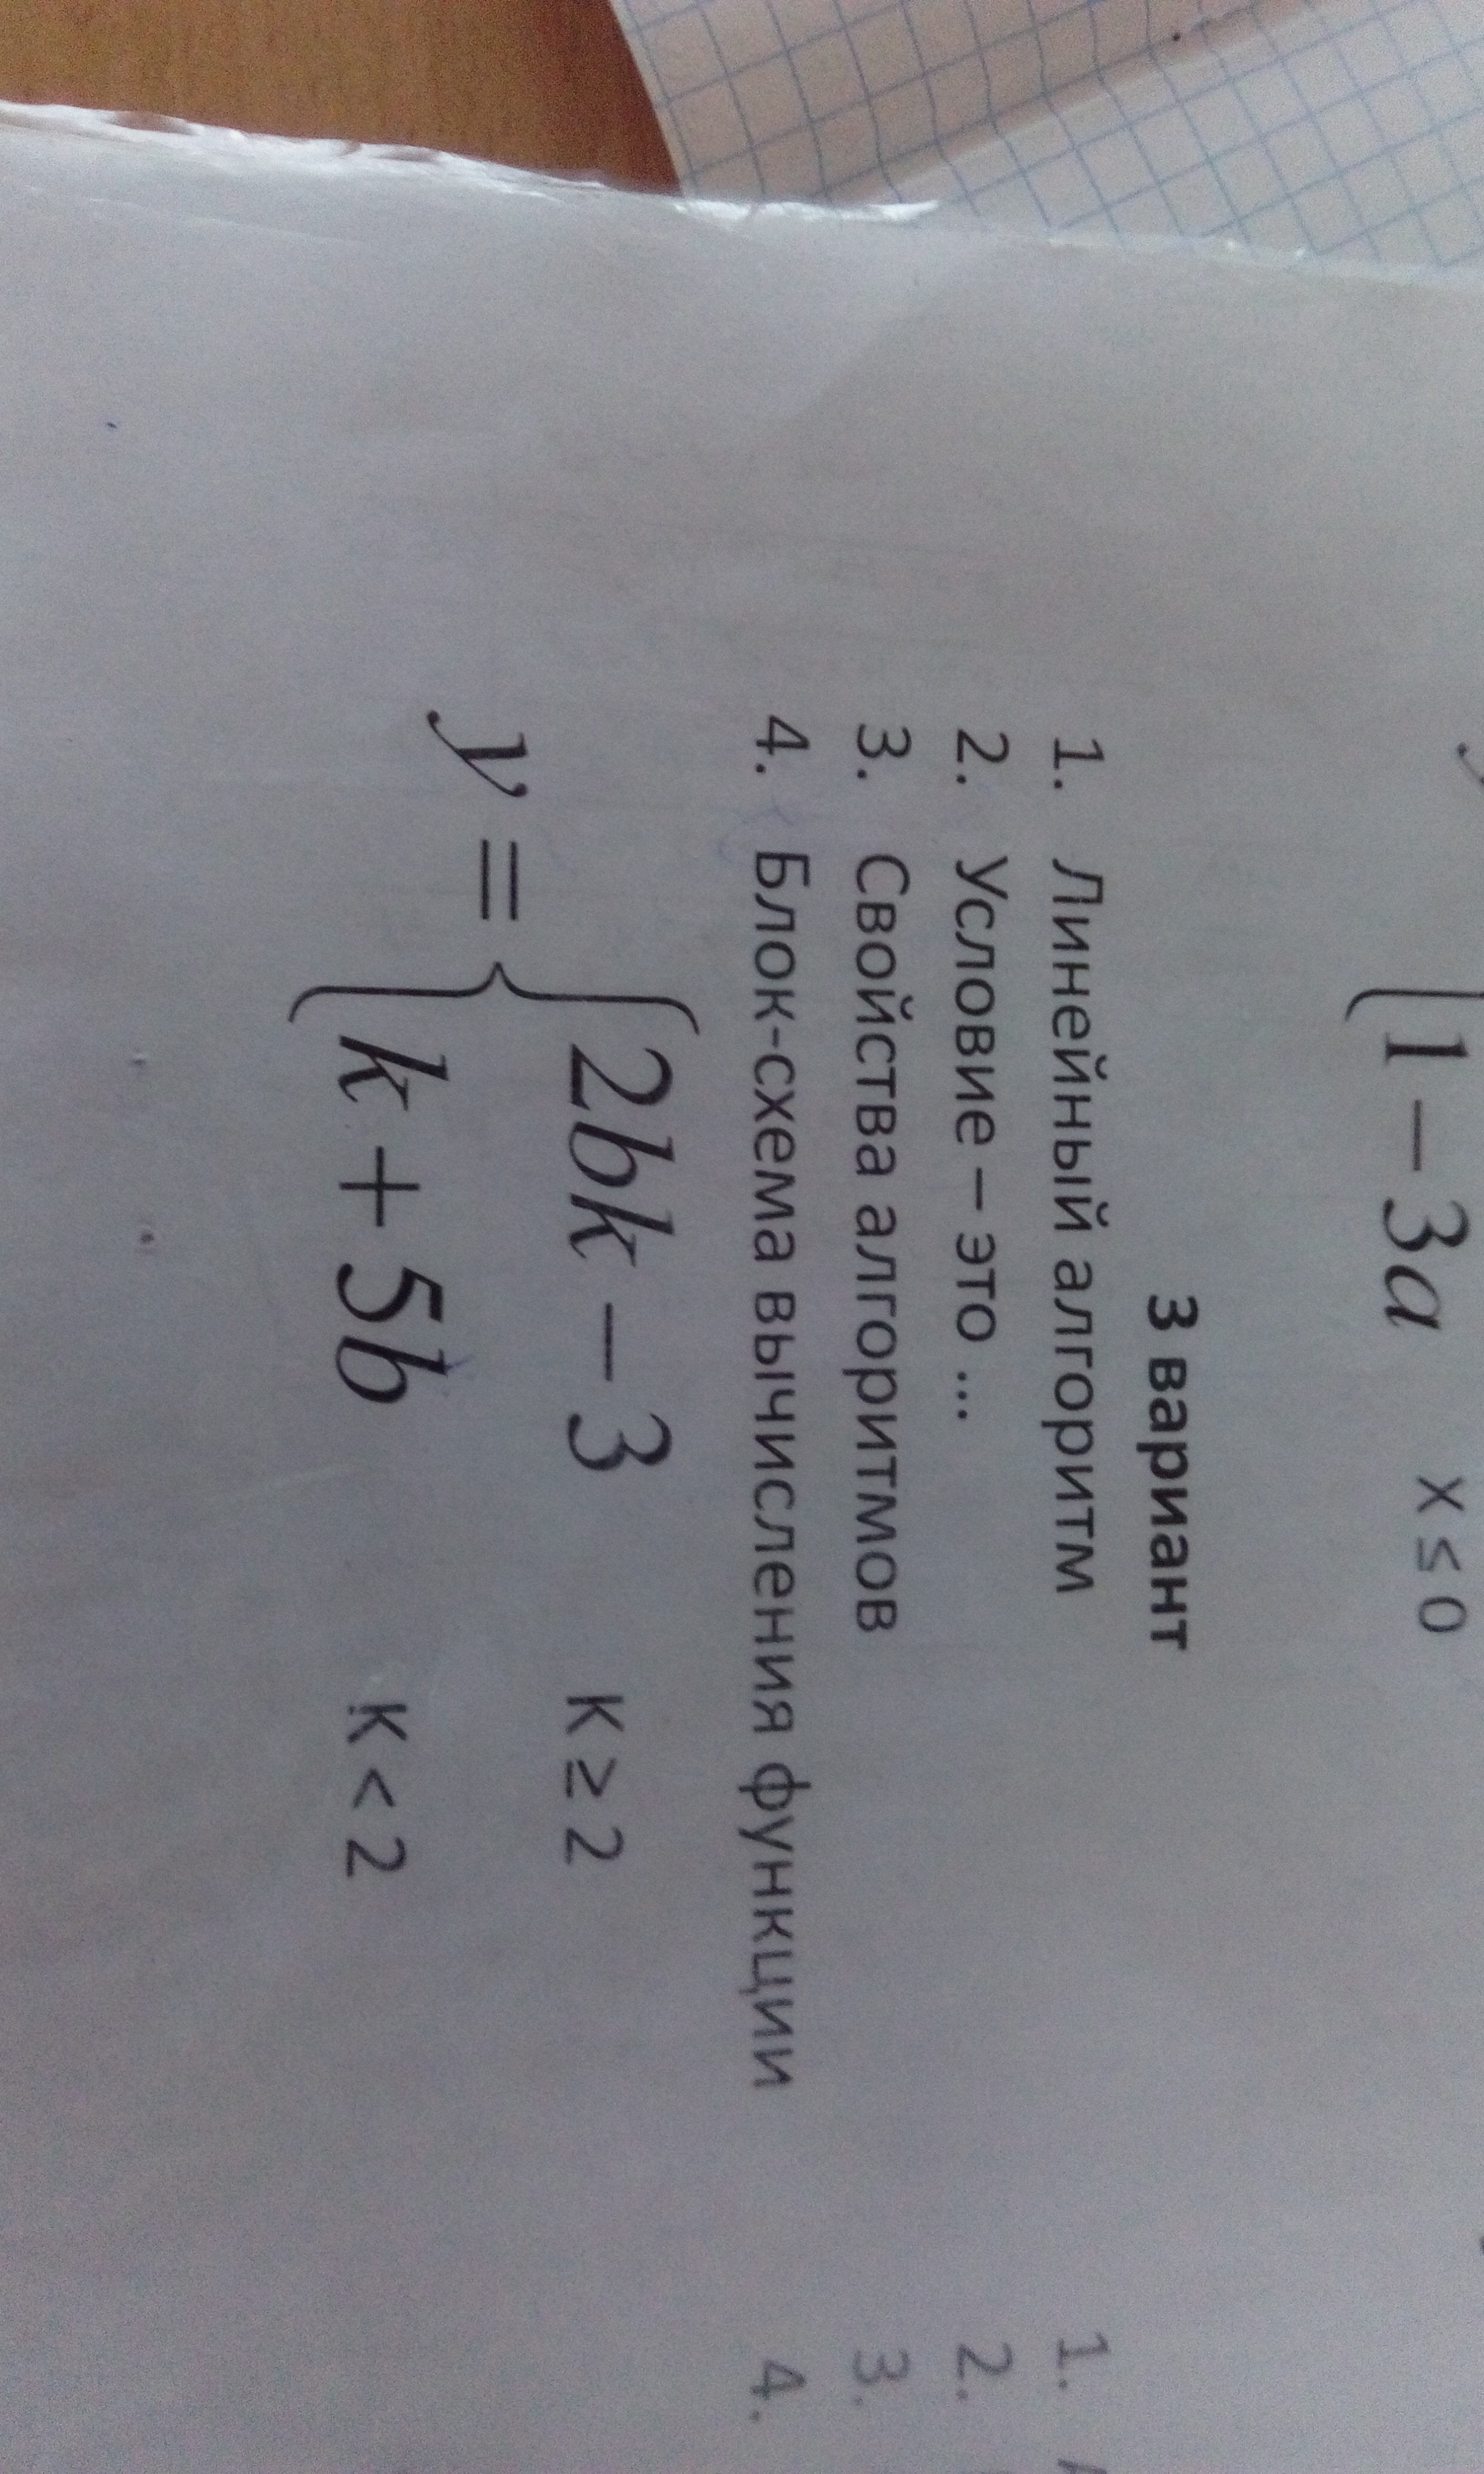 1 − 3a x ≤ 0
3 вариант
1. Линейный алгоритм
2. Условие – это ...
3. Свойства алгоритмов
4. Блок-схема вычисления функции
y = { 2bk − 3 K ≥ 2
k + 5b K < 2
1.
2.
3.
4.